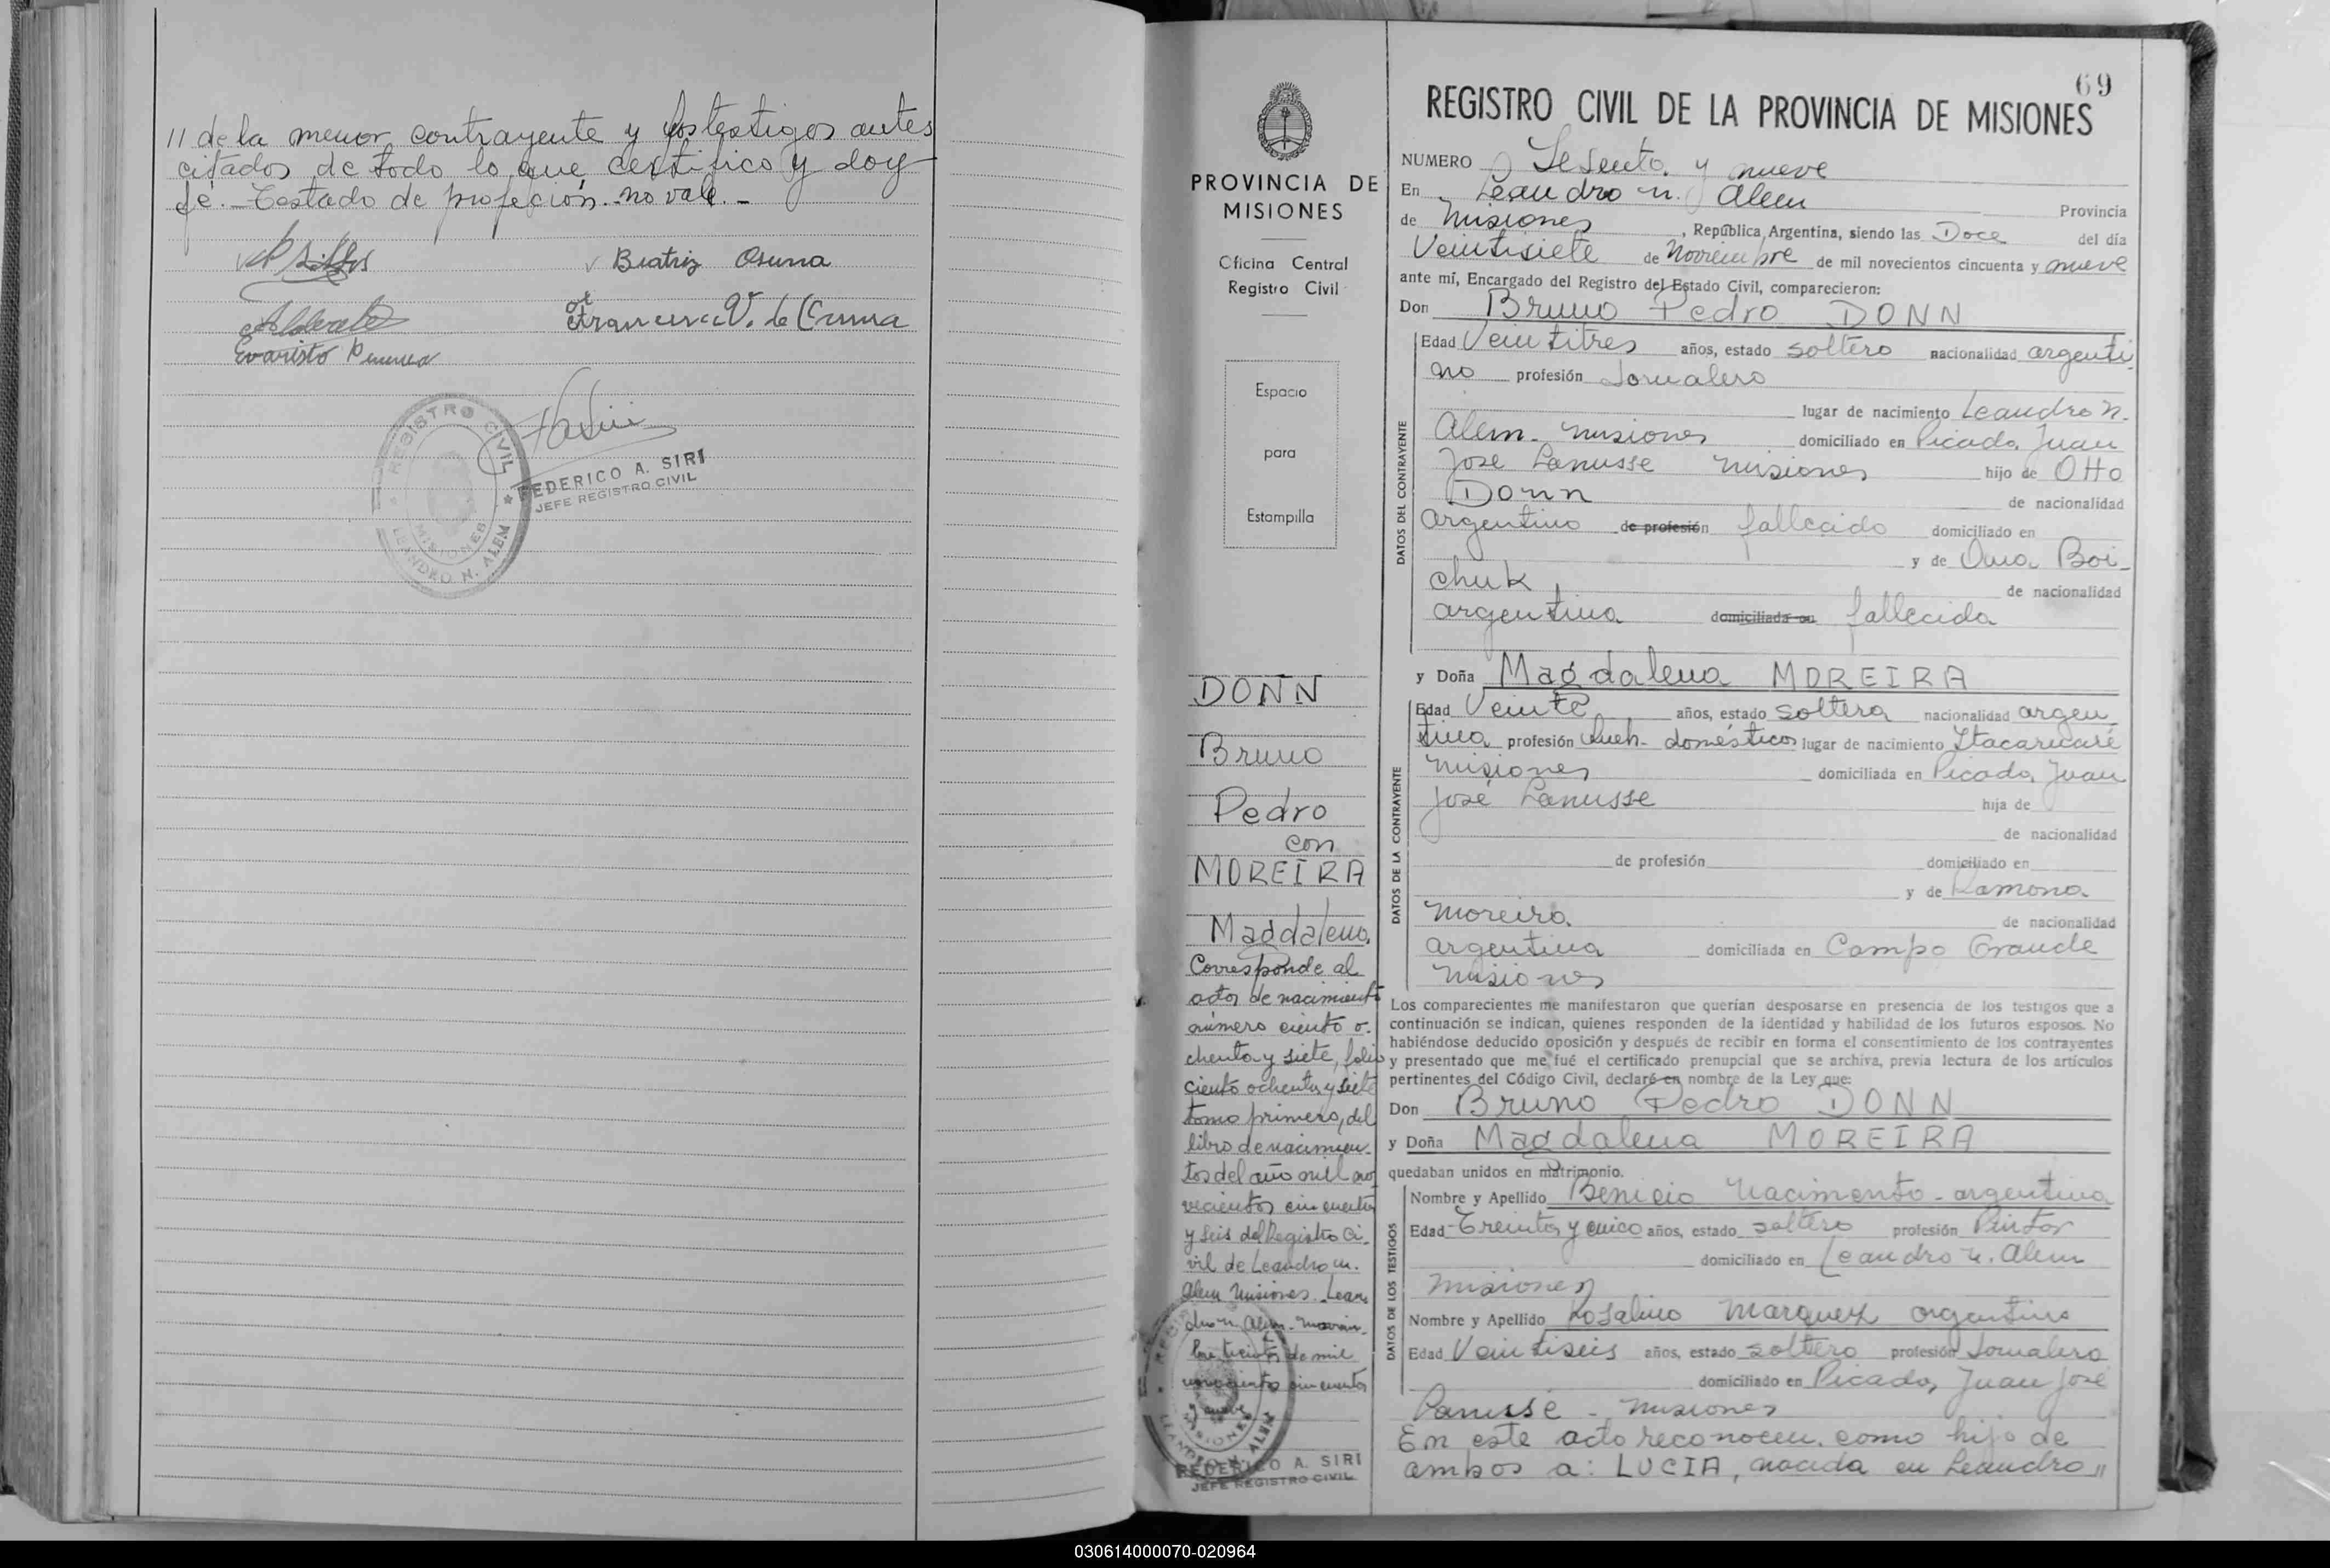 // de la menor contrayente y los testigos antes
citados de todo lo que certifico y doy
fé.- Testado de profeción.- no vale.-
Beatriz Osuna
Francisca V. de Osuna
Evaristo
REGISTRO CIVIL
MISIONES
LEANDRO N. ALEM
FEDERICO A. SIRI
JEFE REGISTRO CIVIL
PROVINCIA DE
MISIONES
Oficina Central
Registro Civil
Espacio
para
Estampilla
DONN
Bruno
Pedro
con
MOREIRA
Magdalena.
Corresponde al
acta de nacimiento
número ciento o-
chenta y siete, folio
ciento ochenta y siete
tomo primero, del
libro de nacimien-
tos del año mil no-
vecientos cincuenta
y seis del Registro Ci-
vil de Leandro N.
Alem Misiones. Lean
dro N. Alem.
de mil
novecientos cincuenta
y nueve
MISIONES
LEANDRO N. ALEM
FEDERICO A. SIRI
JEFE REGISTRO CIVIL
69
REGISTRO CIVIL DE LA PROVINCIA DE MISIONES
NUMERO Sesenta y nueve
En Leandro N. Alem Provincia
de Misiones, República Argentina, siendo las Doce del día
Veintisiete de Noviembre de mil novecientos cincuenta y nueve
ante mí, Encargado del Registro del Estado Civil, comparecieron:
Don Bruno Pedro DONN
DATOS DEL CONTRAYENTE
Edad Veintitres años, estado soltero nacionalidad argenti
no profesión Jornalero
lugar de nacimiento Leandro N.
Alem - Misiones domiciliado en Picada Juan
José Lanusse Misiones hijo de Otto
Donn de nacionalidad
argentino de profesión fallecido domiciliado en
y de Ana Boi-
chuk de nacionalidad
argentina domiciliada en fallecida
y Doña Magdalena MOREIRA
DATOS DE LA CONTRAYENTE
Edad Veinte años, estado soltera nacionalidad argen
tina profesión Queh. domésticos lugar de nacimiento Itacaruaré
Misiones domiciliada en Picada Juan
José Lanusse hija de
de nacionalidad
de profesión domiciliado en
y de Ramona
Moreira de nacionalidad
argentina domiciliada en Campo Grande
Misiones
Los comparecientes me manifestaron que querían desposarse en presencia de los testigos que a
continuación se indican, quienes responden de la identidad y habilidad de los futuros esposos. No
habiéndose deducido oposición y después de recibir en forma el consentimiento de los contrayentes
y presentado que me fué el certificado prenupcial que se archiva, previa lectura de los artículos
pertinentes del Código Civil, declaré en nombre de la Ley que:
Don Bruno Pedro DONN
y Doña Magdalena MOREIRA
quedaban unidos en matrimonio.
DATOS DE LOS TESTIGOS
Nombre y Apellido Benicio Nacimento - argentino
Edad Treinta y cinco años, estado soltero profesión Pintor
domiciliado en Leandro N. Alem
Misiones
Nombre y Apellido Rosalino Marquez argentino
Edad Veintiseis años, estado soltero profesión Jornalero
domiciliado en Picada Juan José
Lanusse - Misiones
En este acto reconocen como hijo de
ambos a: LUCIA, nacida en Leandro //
030614000070-020964